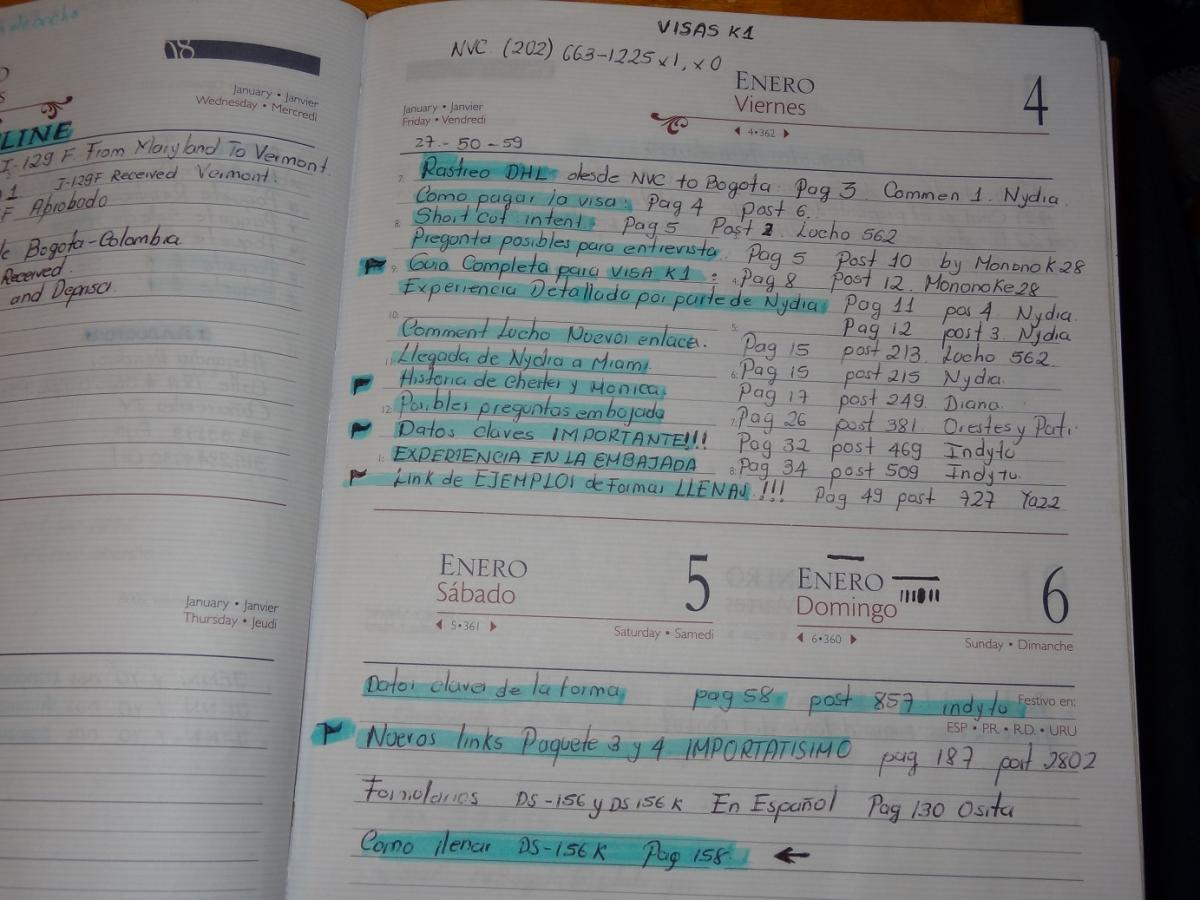 08
January • Janvier
Wednesday • Mercredi
LINE
I-129 F. From Maryland To Vermont.
1 I-129F Received Vermont.
F Aprobado
de Bogota-Colombia
Received.
and
January • Janvier
Thursday • Jeudi
VISAS K1
NVC (202) 663-1225 x1, x0
ENERO
Viernes
4
January • Janvier
Friday • Vendredi
4•362
27 - 50 - 59
Rastreo DHL desde NVC to Bogota Pag 3 Commen 1. Nydia.
Como pagar la visa: Pag 4 Post 6.
Short Cot intent: Pag 5 Post 2. Lucho 562
Pregunta posibles para entrevista. Pag 5 Post 10 by Monono K28
Guia Completa para VISA K1: Pag 8 Post 12. MononoKe28
Experiencia Detallada por parte de Nydia Pag 11 pos 4 Nydia.
Pag 12 post 3. Nydia
Comment Lucho Nuevos enlace. Pag 15 post 213. Lucho 562.
Llegada de Nydia a Miami Pag 15 post 215 Nydia.
Historia de Chester y Monica. Pag 17 post 249. Diana.
Posibles preguntas embajada Pag 26 post 381 Orestes y Pati.
Datos claves IMPORTANTE!!! Pag 32 post 469 Indytu
EXPERIENCIA EN LA EMBAJADA Pag 34 post 509 Indytu.
Link de EJEMPLOS de formas LLENAS !!! Pag 49 post 727 Yazz
ENERO
Sábado
5
5•361
Saturday • Samedi
ENERO
Domingo
6
6•360
Sunday • Dimanche
Datos claves de la forma pag 58 post 857 indytu
Festivo en:
ESP • PR. • R.D. • URU
Nuevos links Paquete 3 y 4 IMPORTATISIMO pag 187 post 2802
Formolarios DS-156 y DS 156 K En Español Pag 130 Osita
Como llenar DS-156 K Pag 158.